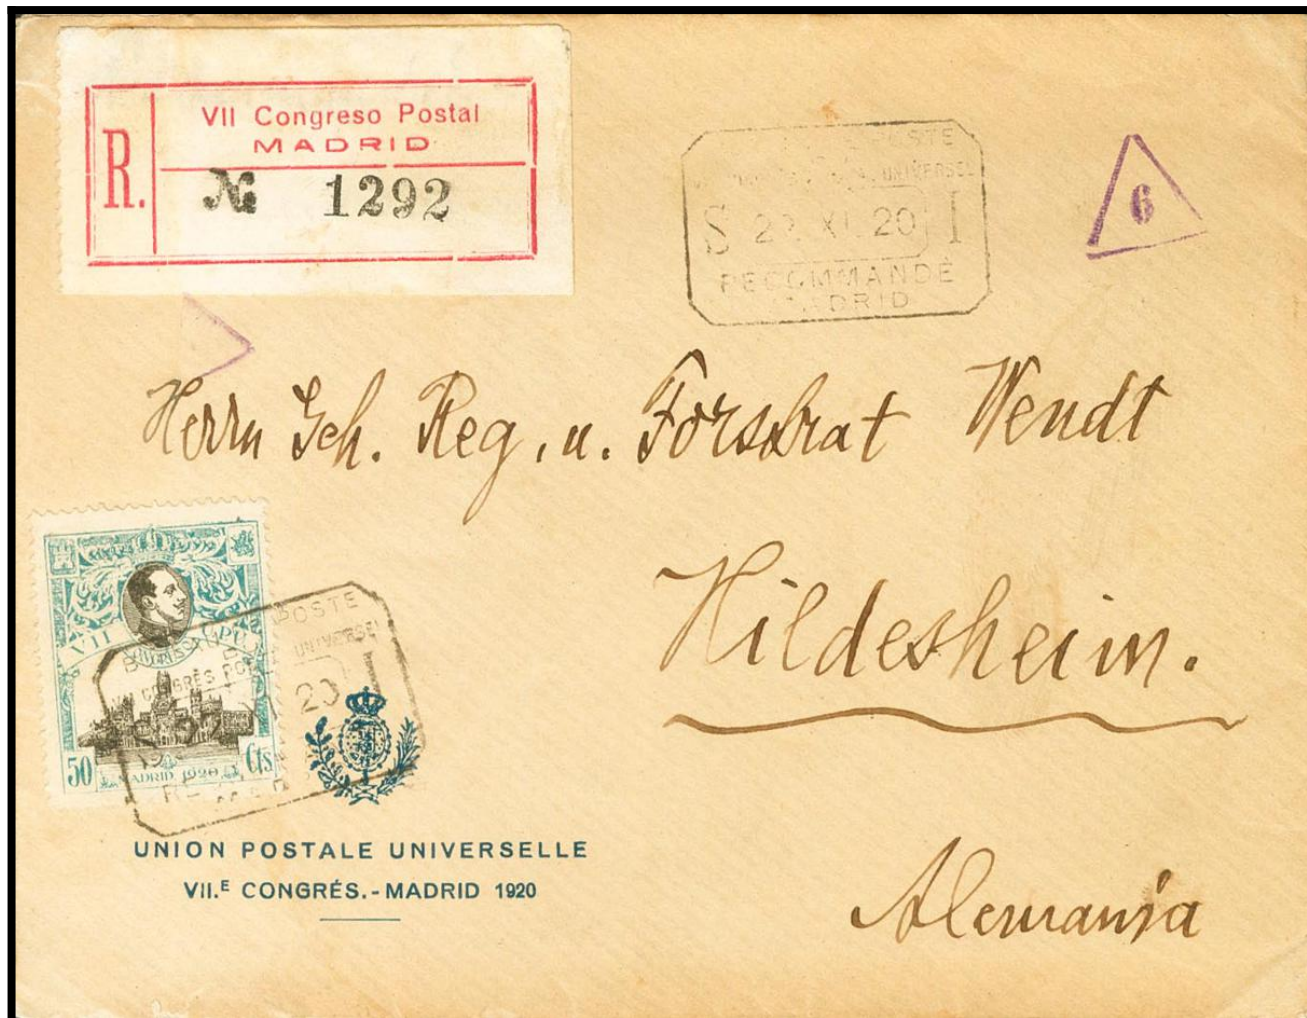 R.
VII Congreso Postal
MADRID
№ 1292
POSTE
UNIVERSEL
S XI. 20 I
RECOMMANDÉ
MADRID
6
Herrn Geh. Reg. u. Forstrat Wendt
Hildesheim.
Alemania
VII UPU
50 Cts
MADRID 1920
POSTE
VII CONGRÈS UNIVERSEL
20 I
UNION POSTALE UNIVERSELLE
VII.E CONGRÉS.-MADRID 1920